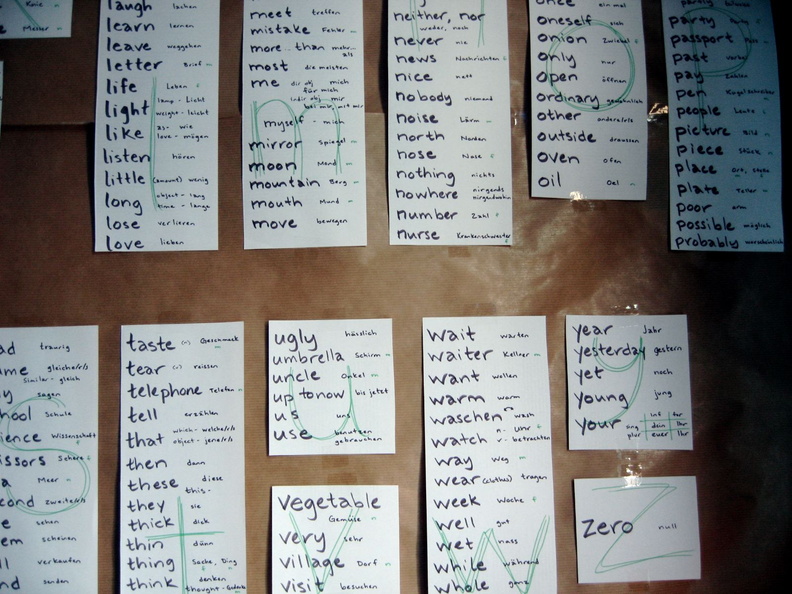 Knie
Messer
laugh lachen
learn lernen
leave weggehen
letter Brief m
life Leben
light lang - Licht
weight - leicht
like as - wie
love - mögen
listen hören
little (amount) wenig
long object - lang
time - lange
lose verlieren
love lieben
meet treffen
mistake Fehler m
more... than mehr... als
most die meisten
me dir obj mich
für mich
indir obj mir
bei mir, mit mir
myself - mich
mirror Spiegel m
moon Mond m
mountain Berg m
mouth Mund m
move bewegen
neither, nor
weder, noch
never nie
news Nachrichten f
nice nett
nobody niemand
noise Lärm m
north Norden
nose Nase f
nothing nichts
nowhere nirgends
nirgendwohin
number Zahl f
nurse Krankenschwester
f
once einmal
oneself sich
onion Zwiebel f
only nur
open öffnen
ordinary gewöhnlich
other andere/r/s
outside draussen
oven Ofen
oil Oel n
partly
party
passport Pass
past vorbei
pay zahlen
pen Kugelschreiber
people Leute
picture Bild n
piece Stück n
place Ort, 
plate Teller m
poor arm
possible möglich
probably wahrscheinlich
ad traurig
ame gleiche/r/s
similar - gleich
y sagen
hool Schule
ience Wissenschaft
issors Schere f
a Meer n
cond zweite/r/s
e sehen
em scheinen
ll verkaufen
nd senden
taste (n) Geschmack
m
tear (v) reissen
telephone Telefon n
tell erzählen
that which - welche/r/s
object - jene/r/s
then dann
these diese
this -
they sie
thick dick
thin dünn
thing Sache, Ding
f n
think denken
thought - Gedanke
ugly hässlich
umbrella Schirm m
uncle Onkel m
up to now bis jetzt
us uns
use benutzen
gebrauchen
U
vegetable
Gemüse n
very sehr
village Dorf n
visit besuchen
V
wait warten
waiter Kellner m
want wollen
warm warm
waschen wash
watch n - Uhr f
v - betrachten
way Weg m
wear (clothes) tragen
week Woche f
well gut
wet nass
while während
whole ganz
W
year Jahr
n
yesterday gestern
yet noch
young jung
your inf for
sing dein Ihr
plur euer Ihr
y
zero null
Z